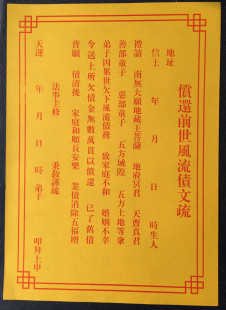 償還前世風流債文疏
地址
信士 年 月 日 時生人
禮請 南無大願地藏王菩薩 地府冥君 天曹真君
善部童子 惡部童子 五方城隍 五方土地等眾
弟子因累世欠下風流債務 致家庭不和 婚姻不幸
今送上所欠債金無數萬貫以償還 已了舊債
昔願 債清後 家庭和順長安樂 業債消除五福增
法事主修 秉教謹疏
天運 年 月 日 時 弟子 叩拜上申